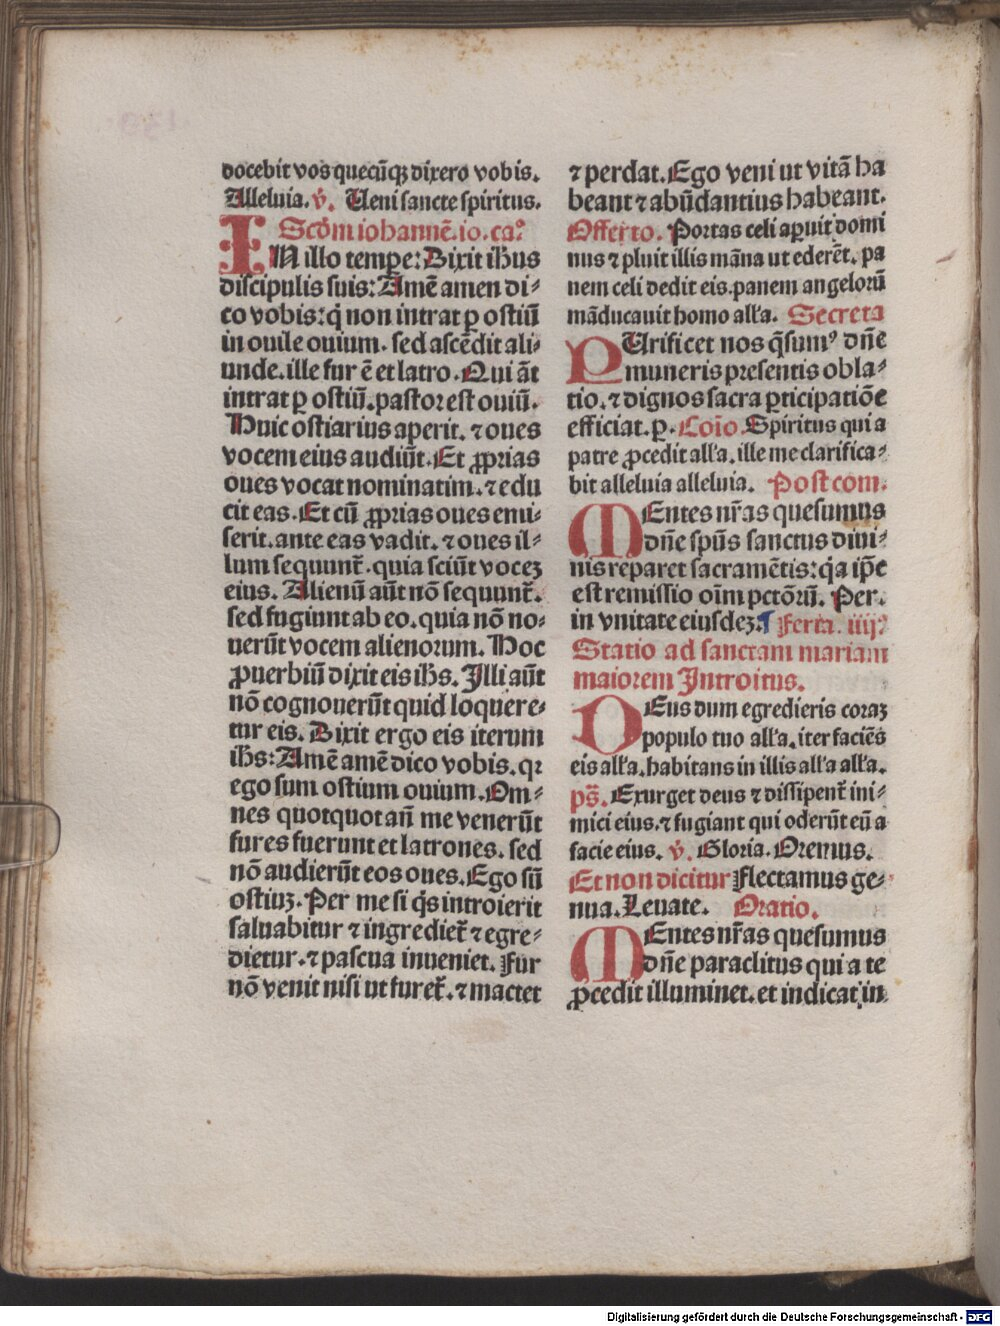 docebit vos quecūqꝫ dixero vobis.
Alleluia. v̄. Ueni sancte spiritus.
Scd̄m iohannē. io. ca.º
IN illo tempe: Dixit ih̄us
discipulis suis: Amē amen di⸗
co vobis: q̄ non intrat ꝑ ostiū
in ouile ouium. sed ascēdit ali⸗
unde. ille fur ē et latro. Qui āt
intrat ꝑ ostiū. pastor est ouiū.
Huic ostiarius aperit. ⁊ oues
vocem eius audiūt. Et ꝓprias
oues vocat nominatim. ⁊ edu
cit eas. Et cū ꝓprias oues emi⸗
serit. ante eas vadit. ⁊ oues il⸗
lum sequunt̄. quia sciūt voceꝫ
eius. Alienū aūt nō sequunt̄.
sed fugiunt ab eo. quia nō no⸗
uerūt vocem alienorum. Hoc
ꝓuerbiū dixit eis ih̄s. Illi aūt
nō cognouerūt quid loquere⸗
tur eis. Dixit ergo eis iterum
ih̄s: Amē amē dico vobis. qꝛ
ego sum ostium ouium. Om⸗
nes quotquot an̄ me venerūt
fures fuerunt et latrones. sed
nō audierūt eos oues. Ego sū
ostiuꝫ. Per me si q̄s introierit
saluabitur ⁊ ingrediet̄ ⁊ egre⸗
dietur. ⁊ pascua inueniet. Fur
nō venit nisi ut furet̄. ⁊ mactet
⁊ perdat. Ego veni ut vitā ha
beant ⁊ abūdantius habeant.
Offerto. Portas celi aꝑuit domi
nus ⁊ pluit illis māna ut ederēt. pa
nem celi dedit eis. panem angelorū
māducauit homo all'a. Secreta
PUrificet nos q̄sumꝰ dn̄e
muneris presentis obla⸗
tio. ⁊ dignos sacra ꝑticipatiōe
efficiat. ꝑ. Cōio Spiritus qui a
patre ꝓcedit all'a. ille me clarifica⸗
bit alleluia alleluia. Postcom.
MEntes nr̄as quesumus
dn̄e spūs sanctus diui⸗
nis reparet sacramētis: q̄a ip̄e
est remissio oīm pctōrū. Per.
in vnitate eiusdeꝫ. ¶ Feria. iiij.ª
Statio ad sanctam mariam
maiorem Introitus.
DEus dum egredieris coraꝫ
populo tuo all'a. iter faciēs
eis all'a. habitans in illis all'a all'a.
ps̄. Exurget deus ⁊ dissipent̄ ini⸗
mici eius. ⁊ fugiant qui oderūt eū a
facie eius. v̄. Gloria. Oremus.
Et non dicitur Flectamus ge⸗
nua. Leuate. Oratio.
MEntes nr̄as quesumus
dn̄e paraclitus qui a te
ꝓcedit illuminet. et indicat in
Digitalisierung gefördert durch die Deutsche Forschungsgemeinschaft - DFG